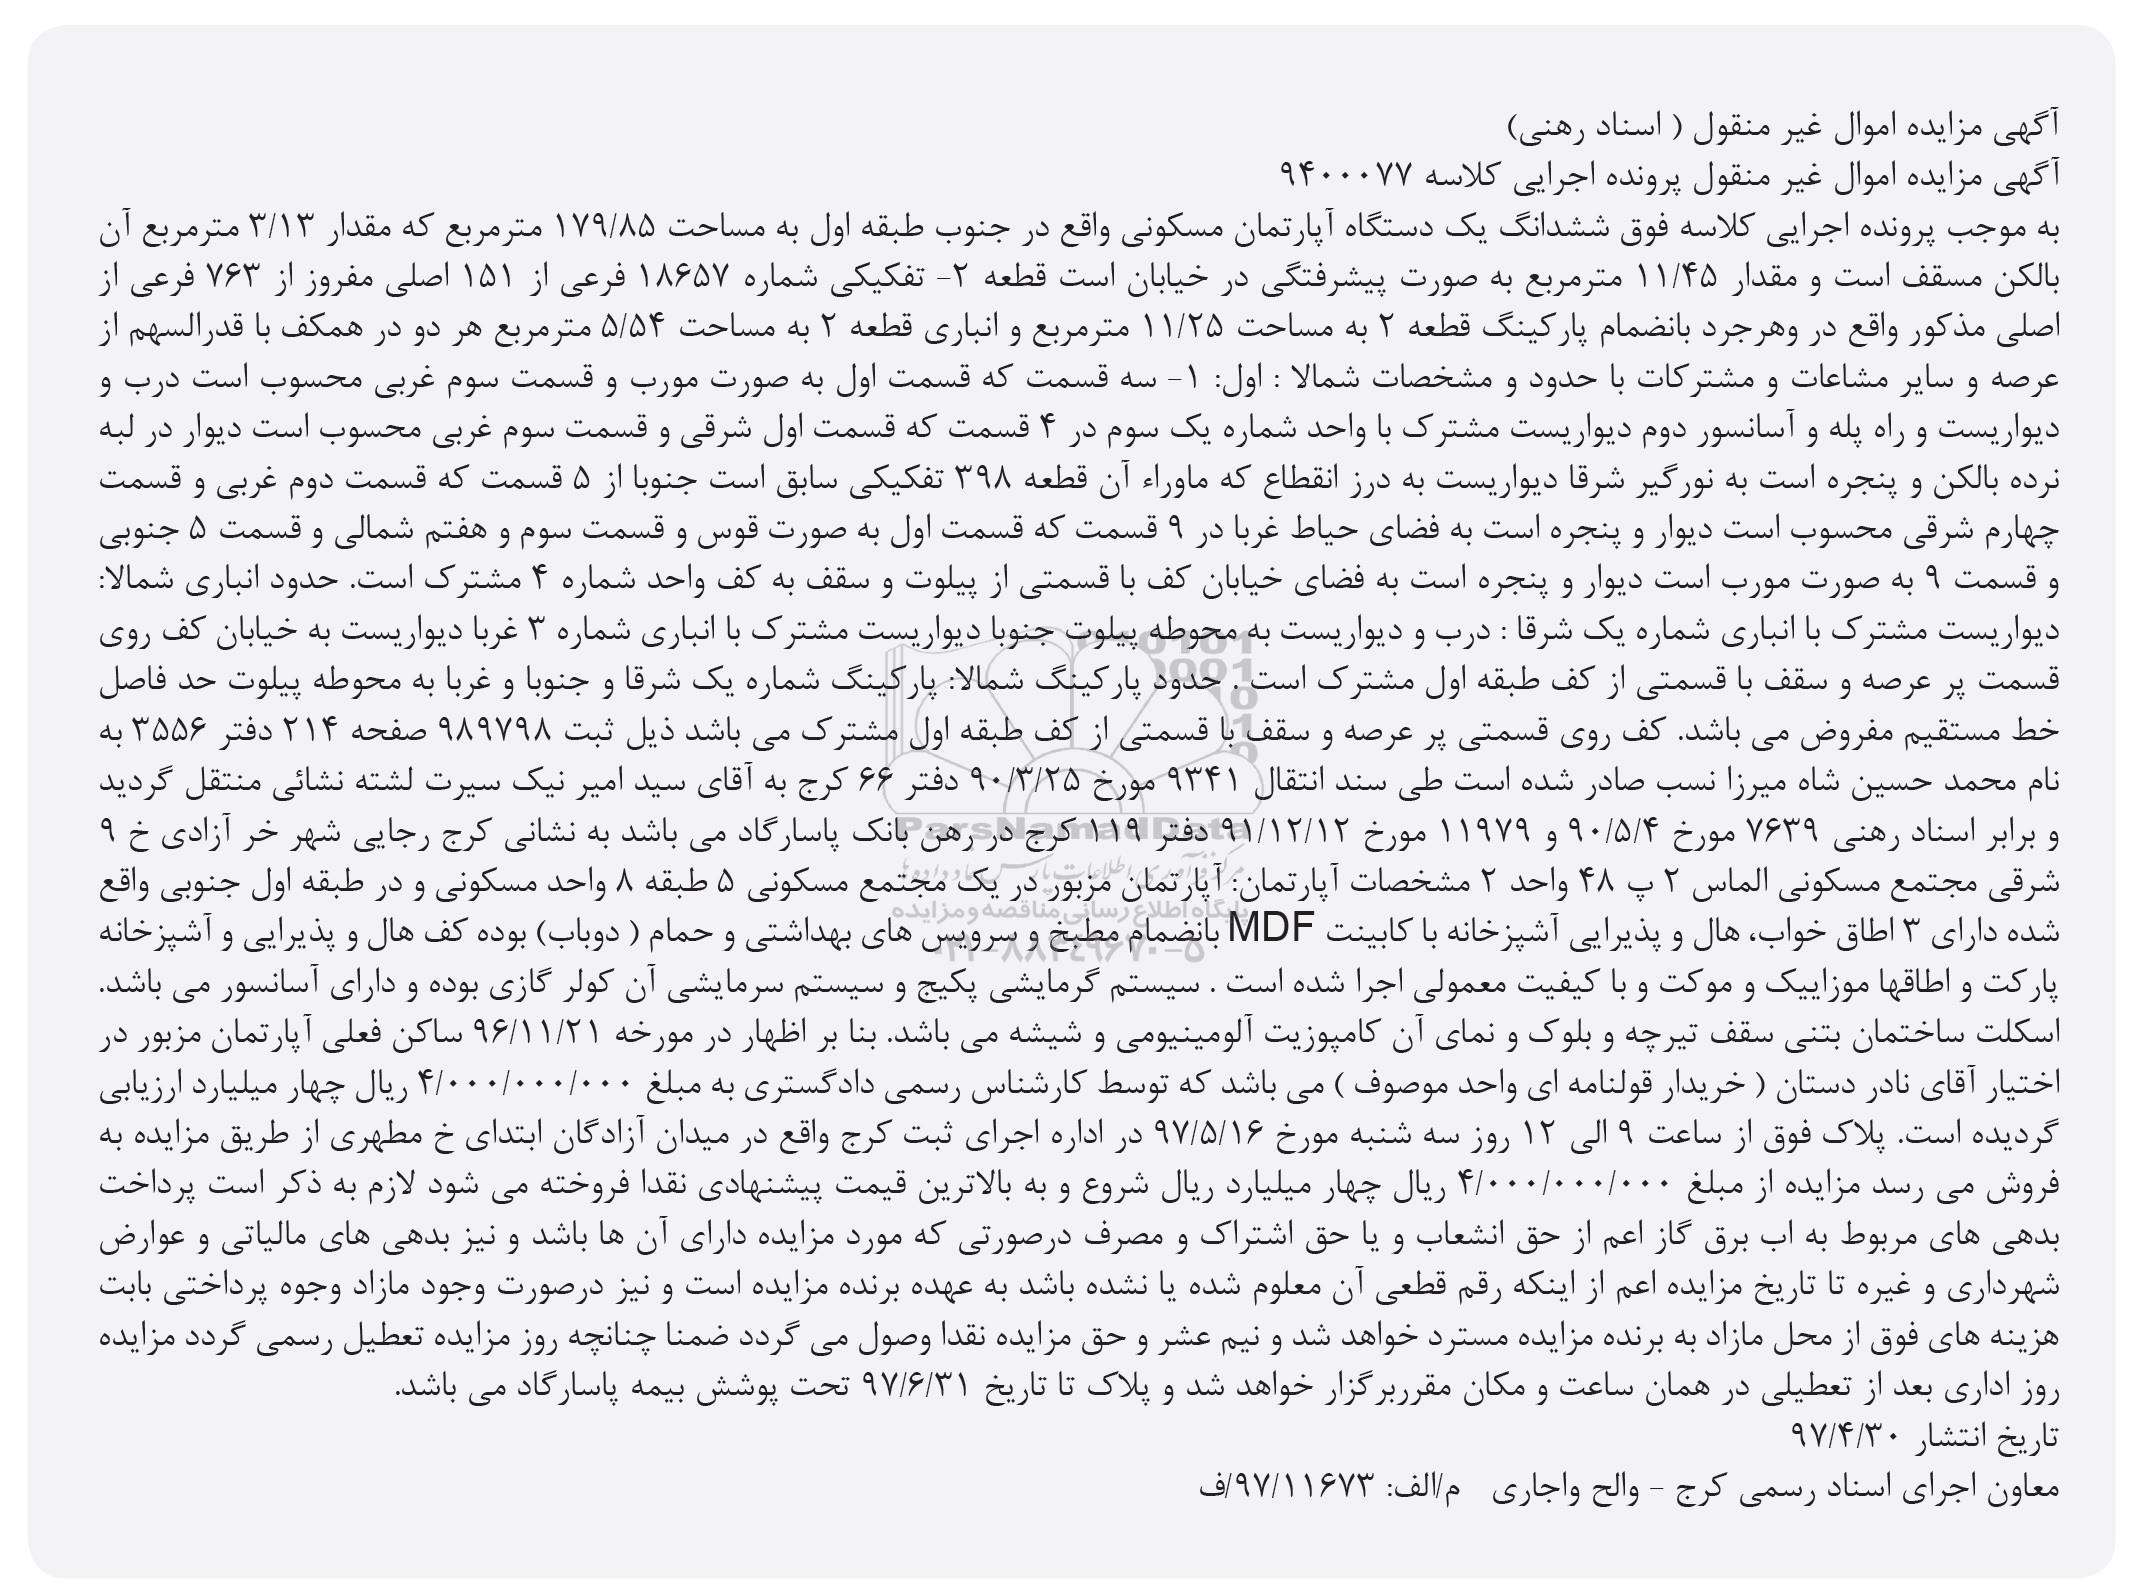 آگهی مزایده اموال غیر منقول ( اسناد رهنی)
آگهی مزایده اموال غیر منقول پرونده اجرایی کلاسه ۹۴۰۰۰۷۷
به موجب پرونده اجرایی کلاسه فوق ششدانگ یک دستگاه آپارتمان مسکونی واقع در جنوب طبقه اول به مساحت ۱۷۹/۸۵ مترمربع که مقدار ۳/۱۳ مترمربع آن
بالکن مسقف است و مقدار ۱۱/۴۵ مترمربع به صورت پیشرفتگی در خیابان است قطعه ۲- تفکیکی شماره ۱۸۶۵۷ فرعی از ۱۵۱ اصلی مفروز از ۷۶۳ فرعی از
اصلی مذکور واقع در وهرجرد بانضمام پارکینگ قطعه ۲ به مساحت ۱۱/۲۵ مترمربع و انباری قطعه ۲ به مساحت ۵/۵۴ مترمربع هر دو در همکف با قدرالسهم از
عرصه و سایر مشاعات و مشترکات با حدود و مشخصات شمالا : اول: ۱- سه قسمت که قسمت اول به صورت مورب و قسمت سوم غربی محسوب است درب و
دیواریست و راه پله و آسانسور دوم دیواریست مشترک با واحد شماره یک سوم در ۴ قسمت که قسمت اول شرقی و قسمت سوم غربی محسوب است دیوار در لبه
نرده بالکن و پنجره است به نورگیر شرقا دیواریست به درز انقطاع که ماوراء آن قطعه ۳۹۸ تفکیکی سابق است جنوبا از ۵ قسمت که قسمت دوم غربی و قسمت
چهارم شرقی محسوب است دیوار و پنجره است به فضای حیاط غربا در ۹ قسمت که قسمت اول به صورت قوس و قسمت سوم و هفتم شمالی و قسمت ۵ جنوبی
و قسمت ۹ به صورت مورب است دیوار و پنجره است به فضای خیابان کف با قسمتی از پیلوت و سقف به کف واحد شماره ۴ مشترک است. حدود انباری شمالا:
دیواریست مشترک با انباری شماره یک شرقا : درب و دیواریست به محوطه پیلوت جنوبا دیواریست مشترک با انباری شماره ۳ غربا دیواریست به خیابان کف روی
قسمت پر عرصه و سقف با قسمتی از کف طبقه اول مشترک است . حدود پارکینگ شمالا: پارکینگ شماره یک شرقا و جنوبا و غربا به محوطه پیلوت حد فاصل
خط مستقیم مفروض می باشد. کف روی قسمتی پر عرصه و سقف با قسمتی از کف طبقه اول مشترک می باشد ذیل ثبت ۹۸۹۷۹۸ صفحه ۲۱۴ دفتر ۳۵۵۶ به
نام محمد حسین شاه میرزا نسب صادر شده است طی سند انتقال ۹۳۴۱ مورخ ۹۰/۳/۲۵ دفتر ۶۶ کرج به آقای سید امیر نیک سیرت لشته نشائی منتقل گردید
و برابر اسناد رهنی ۷۶۳۹ مورخ ۹۰/۵/۴ و ۱۱۹۷۹ مورخ ۹۱/۱۲/۱۲ دفتر ۱۱۹ کرج در رهن بانک پاسارگاد می باشد به نشانی کرج رجایی شهر خر آزادی خ ۹
شرقی مجتمع مسکونی الماس ۲ پ ۴۸ واحد ۲ مشخصات آپارتمان: آپارتمان مزبور در یک مجتمع مسکونی ۵ طبقه ۸ واحد مسکونی و در طبقه اول جنوبی واقع
شده دارای ۳ اطاق خواب، هال و پذیرایی آشپزخانه با کابینت MDF بانضمام مطبخ و سرویس های بهداشتی و حمام ( دوباب) بوده کف هال و پذیرایی و آشپزخانه
پارکت و اطاقها موزاییک و موکت و با کیفیت معمولی اجرا شده است . سیستم گرمایشی پکیج و سیستم سرمایشی آن کولر گازی بوده و دارای آسانسور می باشد.
اسکلت ساختمان بتنی سقف تیرچه و بلوک و نمای آن کامپوزیت آلومینیومی و شیشه می باشد. بنا بر اظهار در مورخه ۹۶/۱۱/۲۱ ساکن فعلی آپارتمان مزبور در
اختیار آقای نادر دستان ( خریدار قولنامه ای واحد موصوف ) می باشد که توسط کارشناس رسمی دادگستری به مبلغ ۴/۰۰۰/۰۰۰/۰۰۰ ریال چهار میلیارد ارزیابی
گردیده است. پلاک فوق از ساعت ۹ الی ۱۲ روز سه شنبه مورخ ۹۷/۵/۱۶ در اداره اجرای ثبت کرج واقع در میدان آزادگان ابتدای خ مطهری از طریق مزایده به
فروش می رسد مزایده از مبلغ ۴/۰۰۰/۰۰۰/۰۰۰ ریال چهار میلیارد ریال شروع و به بالاترین قیمت پیشنهادی نقدا فروخته می شود لازم به ذکر است پرداخت
بدهی های مربوط به اب برق گاز اعم از حق انشعاب و یا حق اشتراک و مصرف درصورتی که مورد مزایده دارای آن ها باشد و نیز بدهی های مالیاتی و عوارض
شهرداری و غیره تا تاریخ مزایده اعم از اینکه رقم قطعی آن معلوم شده یا نشده باشد به عهده برنده مزایده است و نیز درصورت وجود مازاد وجوه پرداختی بابت
هزینه های فوق از محل مازاد به برنده مزایده مسترد خواهد شد و نیم عشر و حق مزایده نقدا وصول می گردد ضمنا چنانچه روز مزایده تعطیل رسمی گردد مزایده
روز اداری بعد از تعطیلی در همان ساعت و مکان مقرربرگزار خواهد شد و پلاک تا تاریخ ۹۷/۶/۳۱ تحت پوشش بیمه پاسارگاد می باشد.
تاریخ انتشار ۹۷/۴/۳۰
معاون اجرای اسناد رسمی کرج - والح واجاری م/الف: ۹۷/۱۱۶۷۳/ف
ParsNamadData
پایگاه اطلاع رسانی مناقصه و مزایده
۰۲۱-۸۸۳۴۹۶۷۰-۵